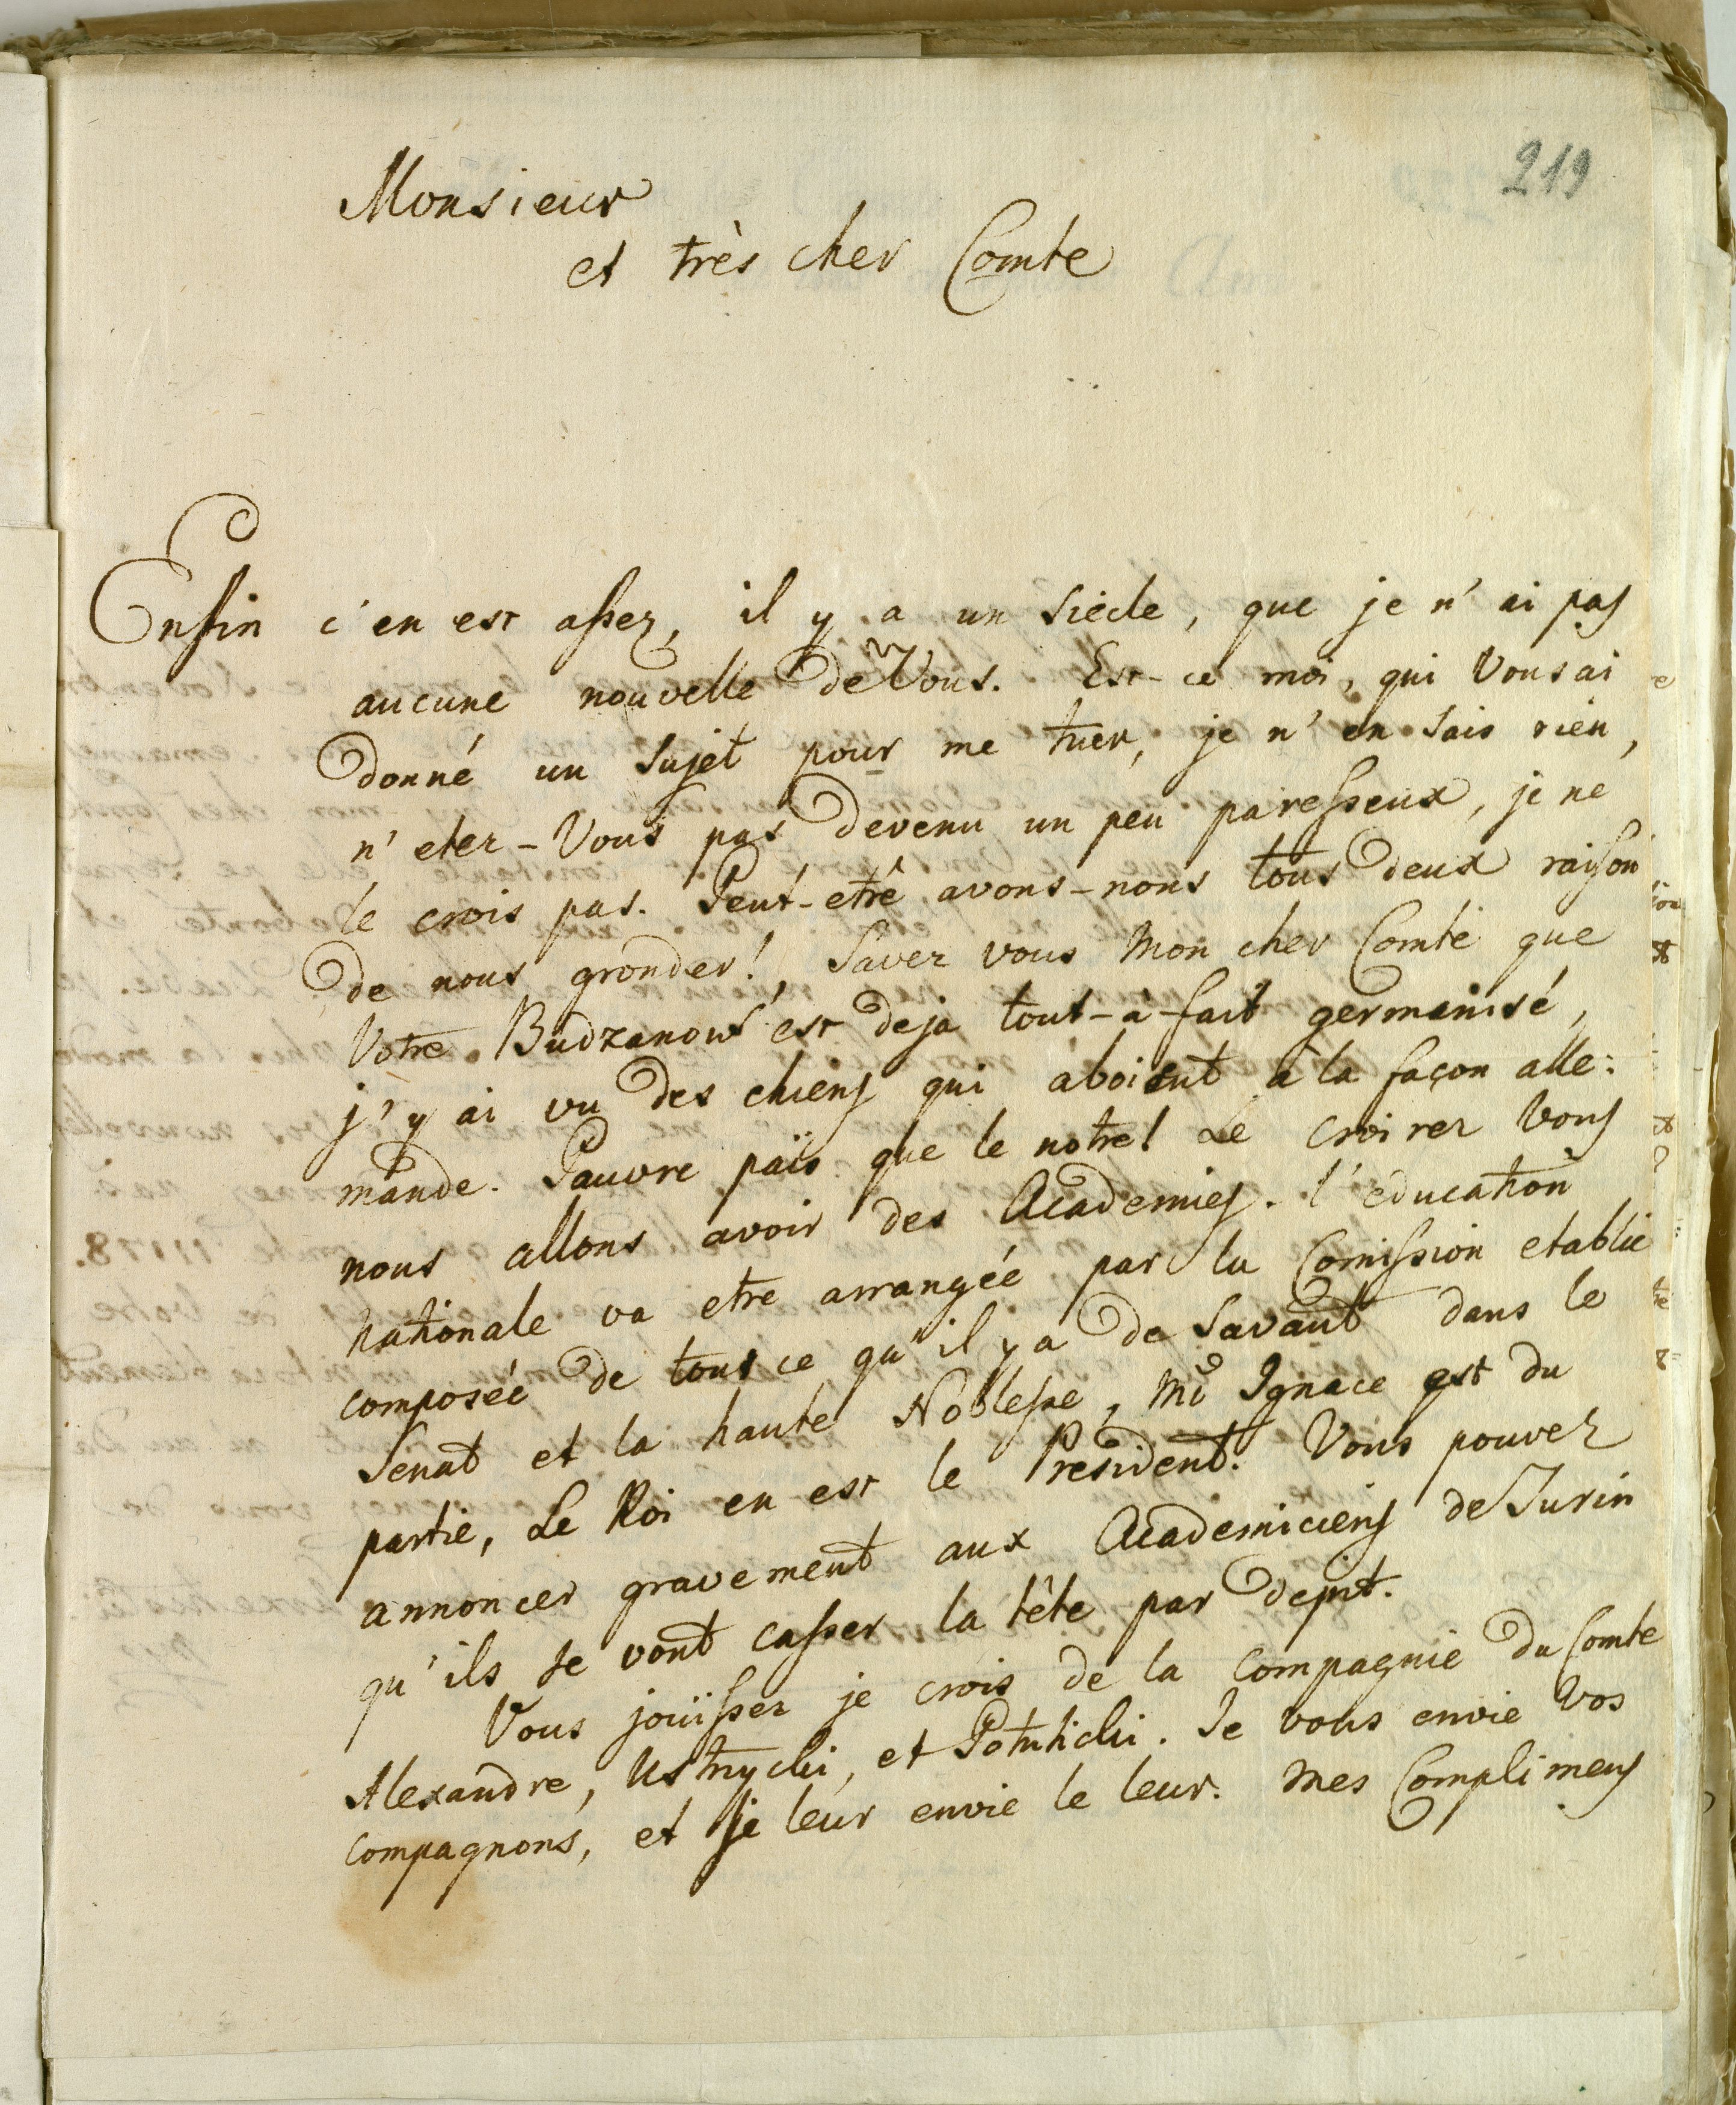 219
Monsieur
et très cher Comte
Enfin c'en est assez, il y a un Siècle, que je n'ai pas
aucune nouvelle de Vous. Est-ce moi, qui Vous ai
donné un sujet pour me tuer, je n'en sais rien,
n'etez-Vous pas devenu un peu paresseux, je ne
le crois pas. Peut-etre avons-nous tous deux raison
de nous gronder! Savez vous Mon cher Comte que
Votre Budzanow est deja tout-à-fait germanisé,
j'y ai vu des chiens qui aboient à la façon alle:
mande. Pauvre païs que le notre! Le croirez Vous
nous allons avoir des Academies. l'éducation
nationale va etre arrangée par la Comission etablie
composée de tout ce qu'il y a de Savant dans le
Senat et la haute Noblesse, Mr Ignace est du
partie, Le Roi en est le President. Vous pouvez
annoncer gravement aux Academiciens de Turin
qu'ils se vont casser la tête par depit.
Vous jouïssez je crois de la Compagnie du Comte
Alexandre, Ustrycki, et Potulicki. Je vous envie Vos
compagnons, et je leur envie le leur. Mes Complimens